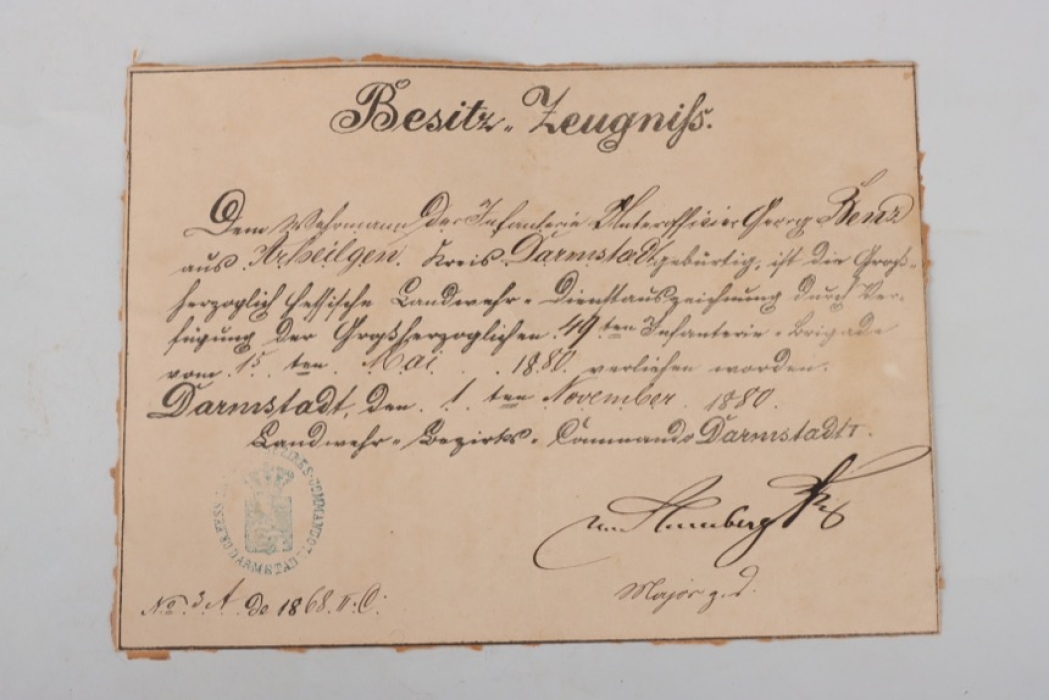 Besitz-Zeugniſs.
Dem Wehrmann der Infanterie Unterofficier Georg Benz
aus Arheilgen. Kreis Darmstadt gebürtig, ist die Groß-
herzoglich Hessische Landwehr-Dienstauszeichnung durch Ver-
fügung der Großherzoglichen 49.ten Infanterie-Brigade
vom 15 ten Mai 1880. verliehen worden.
Darmstadt, den 1 ten November 1880.
Landwehr-Bezirks-Commando Darmstadt I.
BEZIRKS-COMMANDO I.
DARMSTADT
Major z. D.
No. 3 A de 1868. II. C.